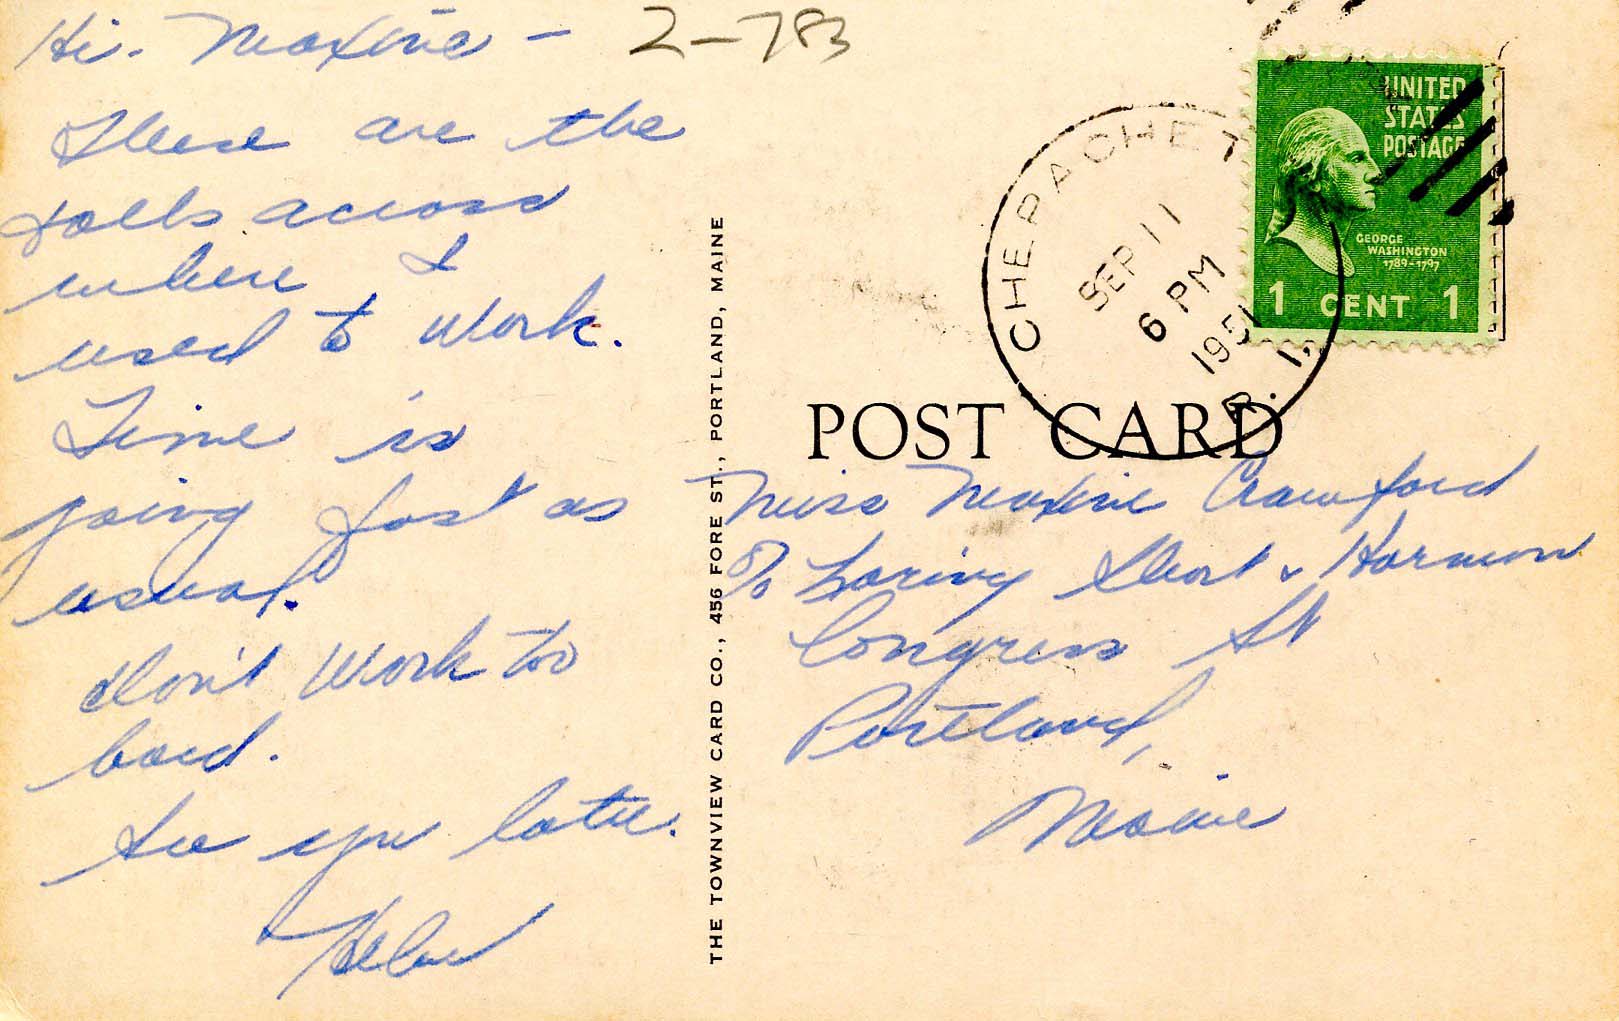 Hi - Maxine -
2-783
These are the
falls across
where I
used to work.
Time is
going fast as
usual.
Don't work too
hard.
See you later.
THE TOWNVIEW CARD CO., 456 FORE ST., PORTLAND, MAINE
CHEPACHET
SEP 11
6 PM
1951
R. I.
UNITED
STATES
POSTAGE
GEORGE
WASHINGTON
1789-1797
1 CENT 1
POST CARD
Miss Maxine Crawford
c/o Loring Short & Harmon
Congress St
Portland,
Maine